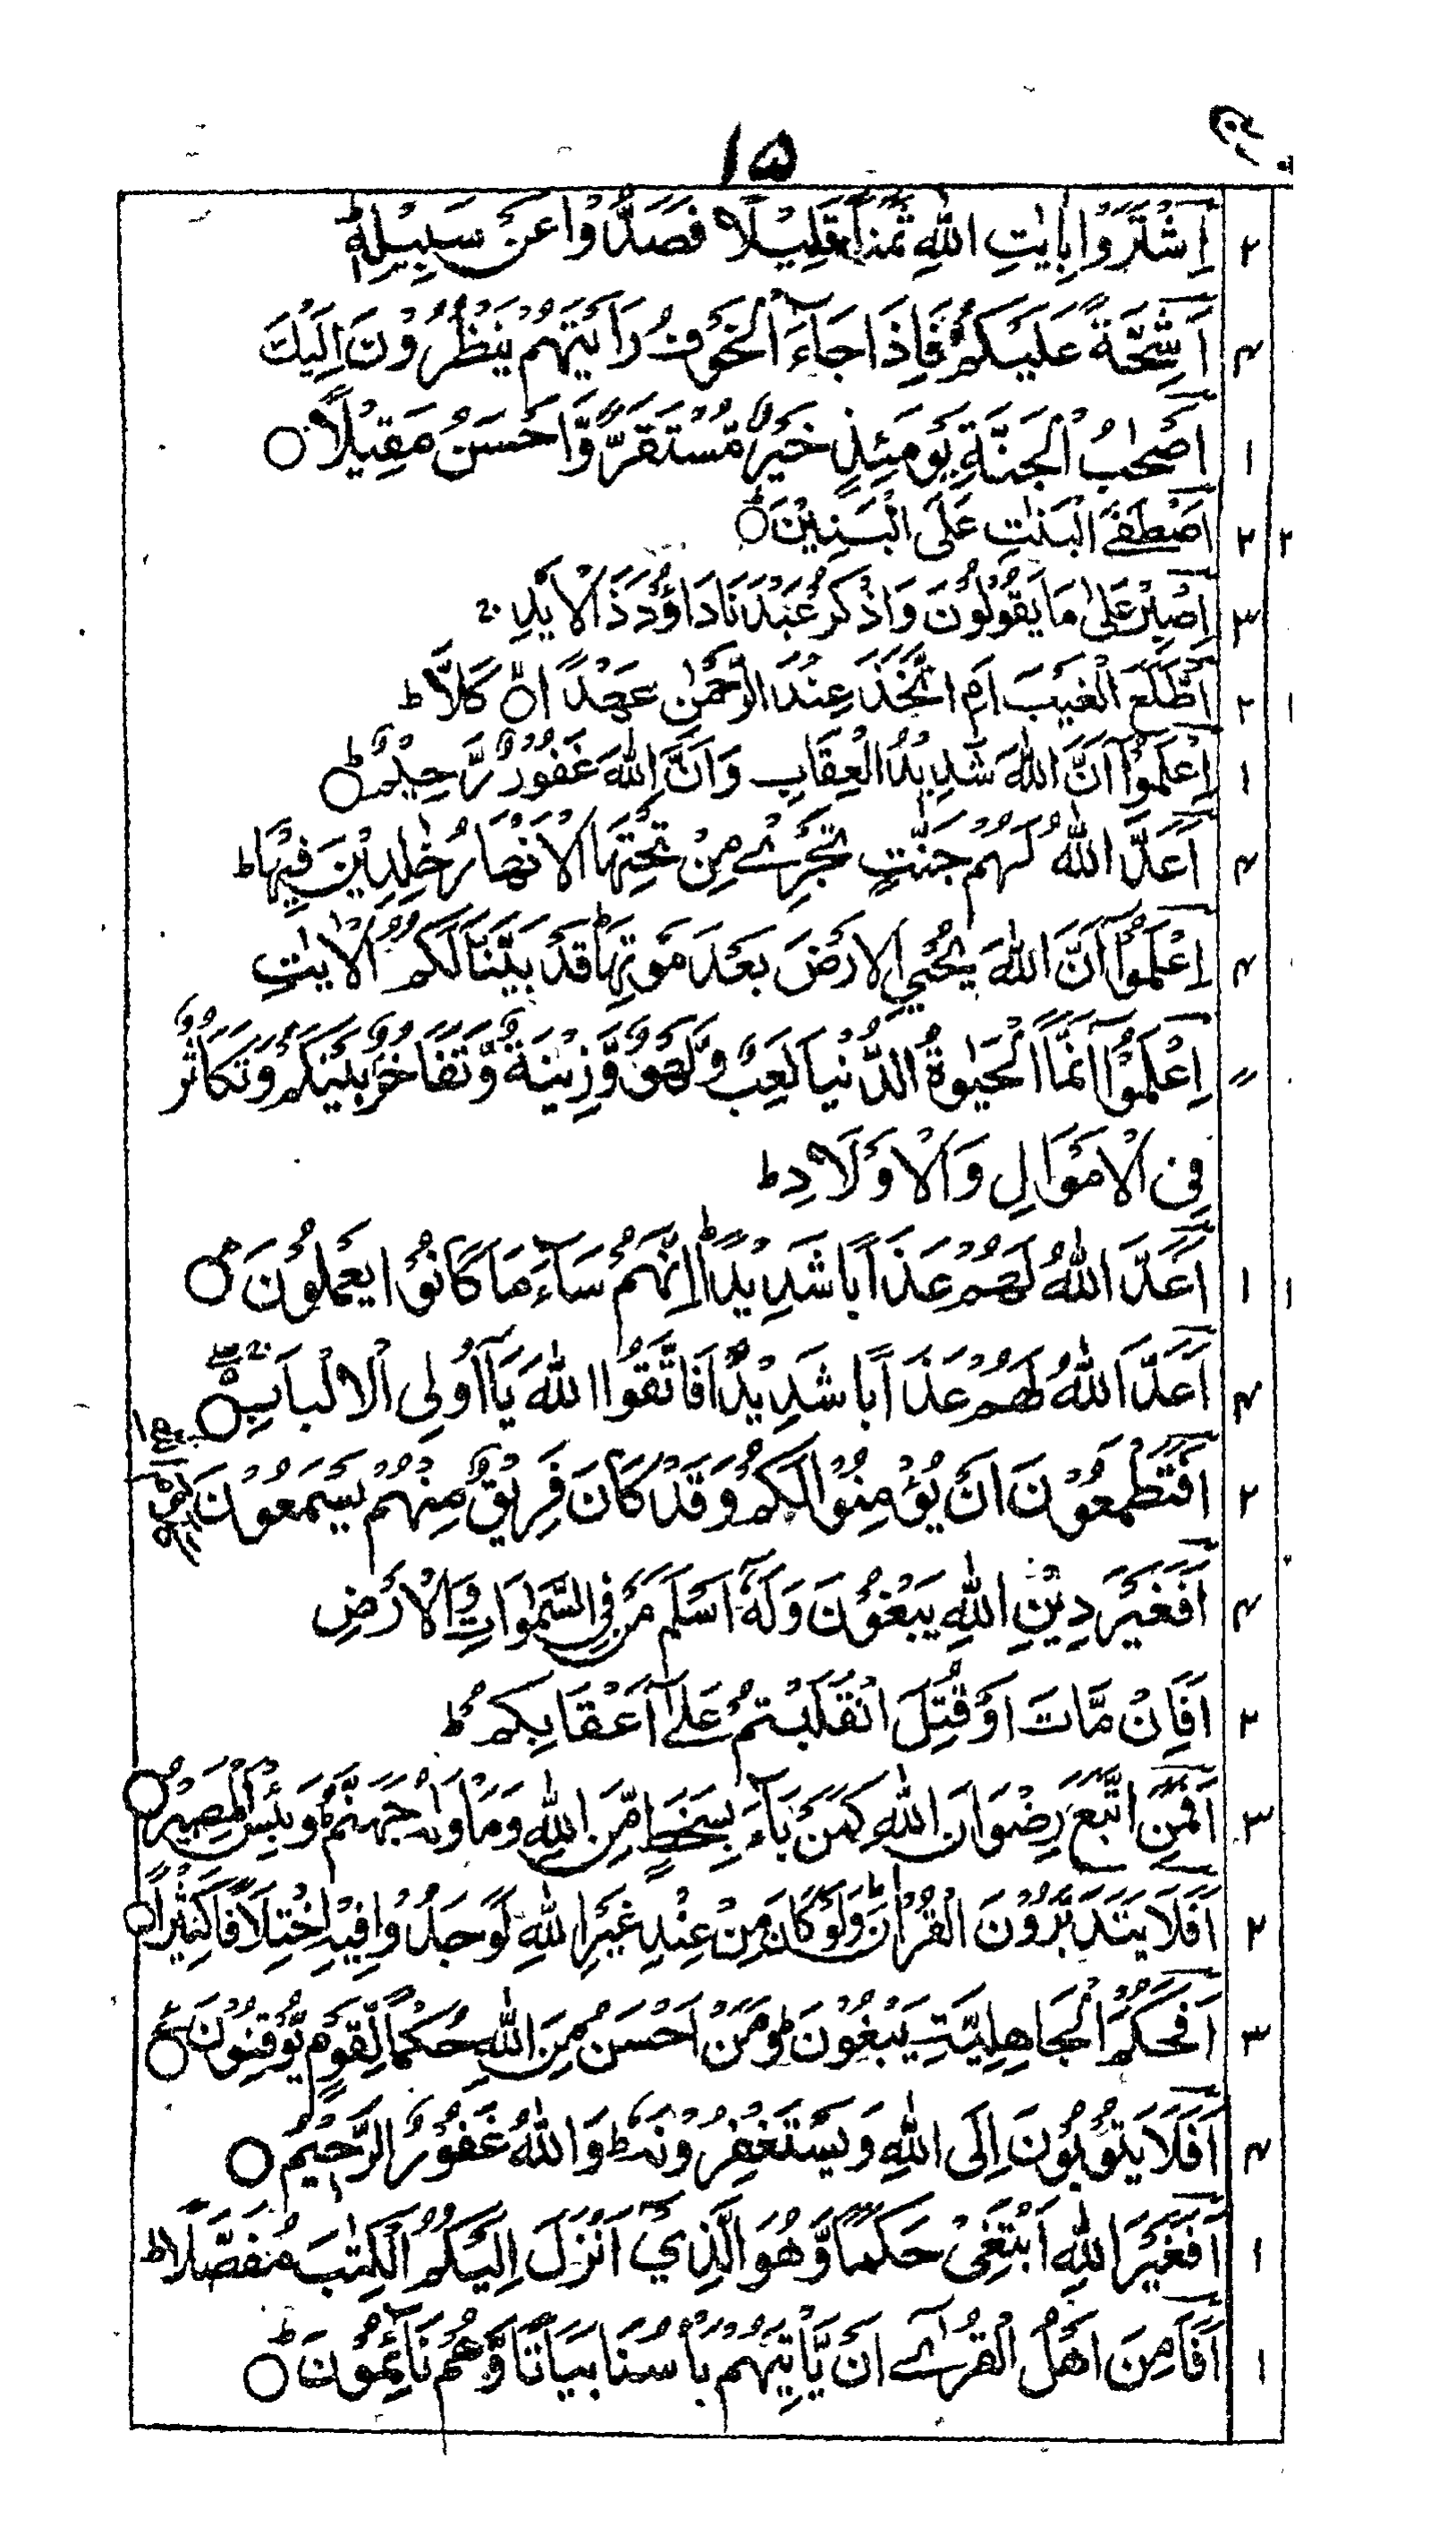 ۱۵
۲ اِشْتَرَوْا بِاٰيٰتِ اللّٰهِ ثَمَنًا قَلِيْلًا فَصَدُّوْا عَنْ سَبِيْلِهٖ ؕ
۴ اَشِحَّةً عَلَيْكُمْ ۚ فَاِذَا جَآءَ الْخَوْفُ رَاَيْتَهُمْ يَنْظُرُوْنَ اِلَيْكَ
۱ اَصْحٰبُ الْجَنَّةِ يَوْمَئِذٍ خَيْرٌ مُّسْتَقَرًّا وَّاَحْسَنُ مَقِيْلًا ○
۲ ۲ اَصْطَفَى الْبَنٰتِ عَلَى الْبَنِيْنَ ○ؕ
۳ اِصْبِرْ عَلٰى مَا يَقُوْلُوْنَ وَاذْكُرْ عَبْدَنَا دَاوٗدَ ذَا الْاَيْدِ ۚ
۲ ۱ اَطَّلَعَ الْغَيْبَ اَمِ اتَّخَذَ عِنْدَ الرَّحْمٰنِ عَهْدًا ○ۙ كَلَّا ؕ
۱ اِعْلَمُوْٓا اَنَّ اللّٰهَ شَدِيْدُ الْعِقَابِ وَاَنَّ اللّٰهَ غَفُوْرٌ رَّحِيْمٌ ○ؕ
۴ اَعَدَّ اللّٰهُ لَهُمْ جَنّٰتٍ تَجْرِيْ مِنْ تَحْتِهَا الْاَنْهَارُ خٰلِدِيْنَ فِيْهَا ؕ
۴ اِعْلَمُوْٓا اَنَّ اللّٰهَ يُحْيِي الْاَرْضَ بَعْدَ مَوْتِهَا ؕ قَدْ بَيَّنَّا لَكُمُ الْاٰيٰتِ
" اِعْلَمُوْٓا اَنَّمَا الْحَيٰوةُ الدُّنْيَا لَعِبٌ وَّلَهْوٌ وَّزِيْنَةٌ وَّتَفَاخُرٌۢ بَيْنَكُمْ وَتَكَاثُرٌ
فِى الْاَمْوَالِ وَالْاَوْلَادِ ؕ
۱ ۱ اَعَدَّ اللّٰهُ لَهُمْ عَذَابًا شَدِيْدًا ؕ اِنَّهُمْ سَآءَ مَا كَانُوْا يَعْمَلُوْنَ ○
۴ اَعَدَّ اللّٰهُ لَهُمْ عَذَابًا شَدِيْدًا فَاتَّقُوا اللّٰهَ يَآ اُولِى الْاَلْبَابِ ○
۲ اَفَتَطْمَعُوْنَ اَنْ يُّؤْمِنُوْا لَكُمْ وَقَدْ كَانَ فَرِيْقٌ مِّنْهُمْ يَسْمَعُوْنَ
۴ اَفَغَيْرَ دِيْنِ اللّٰهِ يَبْغُوْنَ وَلَهٗٓ اَسْلَمَ مَنْ فِى السَّمٰوَاتِ وَالْاَرْضِ
۲ اَفَاِنْ مَّاتَ اَوْ قُتِلَ انْقَلَبْتُمْ عَلٰٓى اَعْقَابِكُمْ ؕ
۳ اَفَمَنِ اتَّبَعَ رِضْوَانَ اللّٰهِ كَمَنْ بَآءَ بِسَخَطٍ مِّنَ اللّٰهِ وَمَاْوٰىهُ جَهَنَّمُ ؕ وَبِئْسَ الْمَصِيْرُ ○
۲ اَفَلَا يَتَدَبَّرُوْنَ الْقُرْاٰنَ ؕ وَلَوْ كَانَ مِنْ عِنْدِ غَيْرِ اللّٰهِ لَوَجَدُوْا فِيْهِ اخْتِلَافًا كَثِيْرًا ○
۳ اَفَحُكْمَ الْجَاهِلِيَّةِ يَبْغُوْنَ ؕ وَمَنْ اَحْسَنُ مِنَ اللّٰهِ حُكْمًا لِّقَوْمٍ يُّوْقِنُوْنَ ○ع
۴ اَفَلَا يَتُوْبُوْنَ اِلَى اللّٰهِ وَيَسْتَغْفِرُوْنَهٗ ؕ وَاللّٰهُ غَفُوْرُ الرَّحِيْمُ ○
۱ اَفَغَيْرَ اللّٰهِ اَبْتَغِىْ حَكَمًا وَّهُوَ الَّذِيْٓ اَنْزَلَ اِلَيْكُمُ الْكِتٰبَ مُفَصَّلًا ؕ
۱ اَفَاَمِنَ اَهْلُ الْقُرٰٓى اَنْ يَّاْتِيَهُمْ بَاْسُنَا بَيَاتًا وَّهُمْ نَآئِمُوْنَ ○ؕ